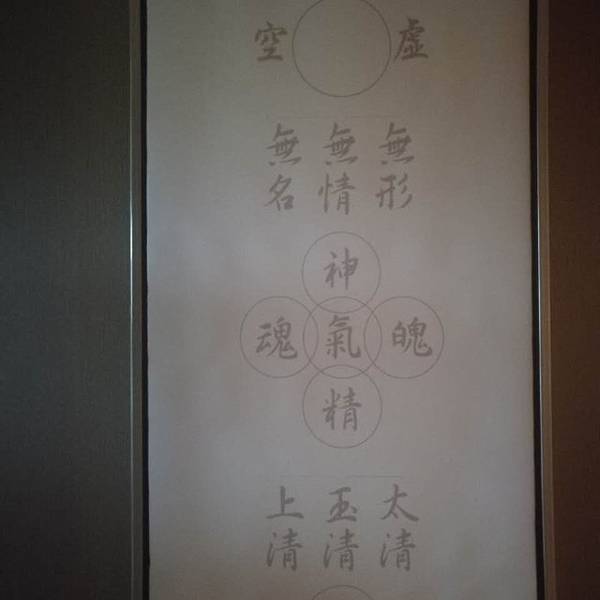 虛空
無形
無情
無名
神
魄氣魂
精
太清
玉清
上清